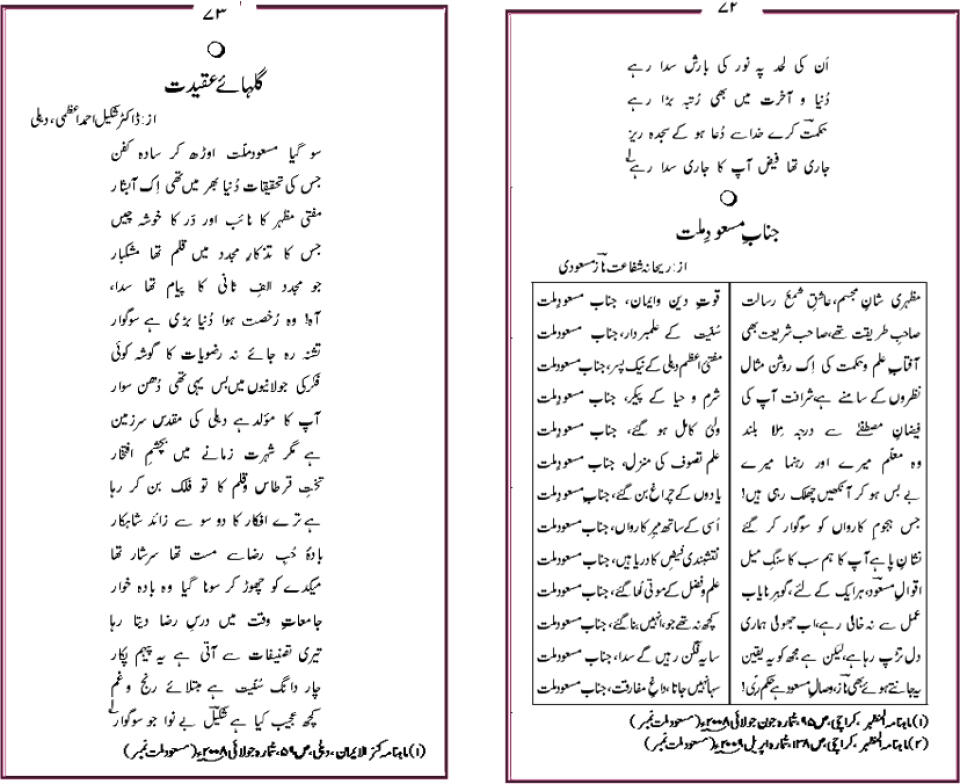 ۷۲
اُن کی لحد پہ نور کی بارش سدا رہے
دُنیا و آخرت میں بھی رُتبہ بڑا رہے
حکمتؔ کرے خدا سے دُعا ہو کے سجدہ ریز
جاری تھا فیض آپ کا جاری سدا رہے ۱؎
جنابِ مسعودِ ملت
از: ریحانہ شفاعت نازؔ مسعودی
مظہری شانِ مجسم، عاشقِ شمعِ رسالت قوتِ دین و ایمان، جناب مسعودِ ملت
صاحبِ طریقت تھے، صاحبِ شریعت بھی سُنّیت کے علمبردار، جناب مسعودِ ملت
آفتابِ علم و حکمت کی اِک روشن مثال مفتی اعظم دہلی کے نیک پسر، جناب مسعودِ ملت
نظروں کے سامنے ہے شرافت آپ کی شرم و حیا کے پیکر، جناب مسعودِ ملت
فیضانِ مصطفیٰ سے درجہ مِلا بلند ولیٔ کامل ہو گئے، جناب مسعودِ ملت
وہ معلّم میرے اور رہنما میرے علم تصوف کی منزل، جناب مسعودِ ملت
بے بس ہو کر آنکھیں چھلک رہی ہیں! یادوں کے چراغ بن گئے، جناب مسعودِ ملت
جس ہجومِ کارواں کو سوگوار کر گئے اُسی کے ساتھ میرِ کارواں، جناب مسعودِ ملت
نشانِ پا ہے آپ کا ہم سب کا سنگِ میل نقشبندی فیض کا دریا ہیں، جناب مسعودِ ملت
اقوالِ مسعودؔ، ہر ایک کے لئے، گوہرِ نایاب علم و فضل کے موتی لُٹا گئے، جناب مسعودِ ملت
عمل سے نہ خالی رہے، اب جھولی ہماری کچھ نہ تھے جو، انہیں بنا گئے، جناب مسعودِ ملت
دل تڑپ رہا ہے، لیکن ہے مجھ کو یہ یقین سایہ فگن رہیں گے سدا، جناب مسعودِ ملت
یہ جانتے ہوئے بھی نازؔ، وصالِ مسعود ہے حکم ربی! سہا نہیں جاتا، داغِ مفارقت، جناب مسعودِ ملت
(۱) ماہنامہ المظہر، کراچی، ص ۹۵، شمارہ جون جولائی ۲۰۰۸ء (مسعود ملت نمبر)
(۲) ماہنامہ المظہر، کراچی، ص ۱۳۸، شمارہ اپریل ۲۰۰۹ء (مسعود ملت نمبر)
۷۳
گلہائے عقیدت
از: ڈاکٹر شکیل احمد اعظمی، دہلی
سو گیا مسعودِ ملّت اوڑھ کر سادہ کفن
جس کی تحقیقات دُنیا بھر میں تھی اِک آبشار
مفتی مظہر کا نائب اور دَر کا خوشہ چیں
جس کا تذکارِ مجدد میں قلم تھا مشکبار
جو مجدد الفِ ثانی کا پیام تھا سدا،
آہ! وہ رُخصت ہوا دُنیا بڑی ہے سوگوار
تشنہ رہ جائے نہ رضویات کا گوشہ کوئی
فکر کی جولانیوں میں بس یہی تھی دُھن سوار
آپ کا مؤلد ہے دہلی کی مقدس سرزمین
ہے مگر شہرت زمانے میں بچشمِ افتخار
تختِ قرطاس و قلم کا تو فلک بن کر رہا
ہے ترے افکار کا دو سو سے زائد شاہکار
بادۂ حُبِ رضا سے مست تھا سرشار تھا
میکدے کو چھوڑ کر سونا گیا وہ بادہ خوار
جامعاتِ وقت میں درسِ رضا دیتا رہا
تیری تصنیفات سے آتی ہے یہ پیہم پکار
چار دانگ سُنّیت ہے مبتلائے رنج و غم
کچھ عجب کیا ہے شکیلؔ بے نوا جو سوگوار ۱؎
(۱) ماہنامہ کنز الایمان، دہلی، ص ۵۹، شمارہ جولائی ۲۰۰۸ء (مسعود ملت نمبر)